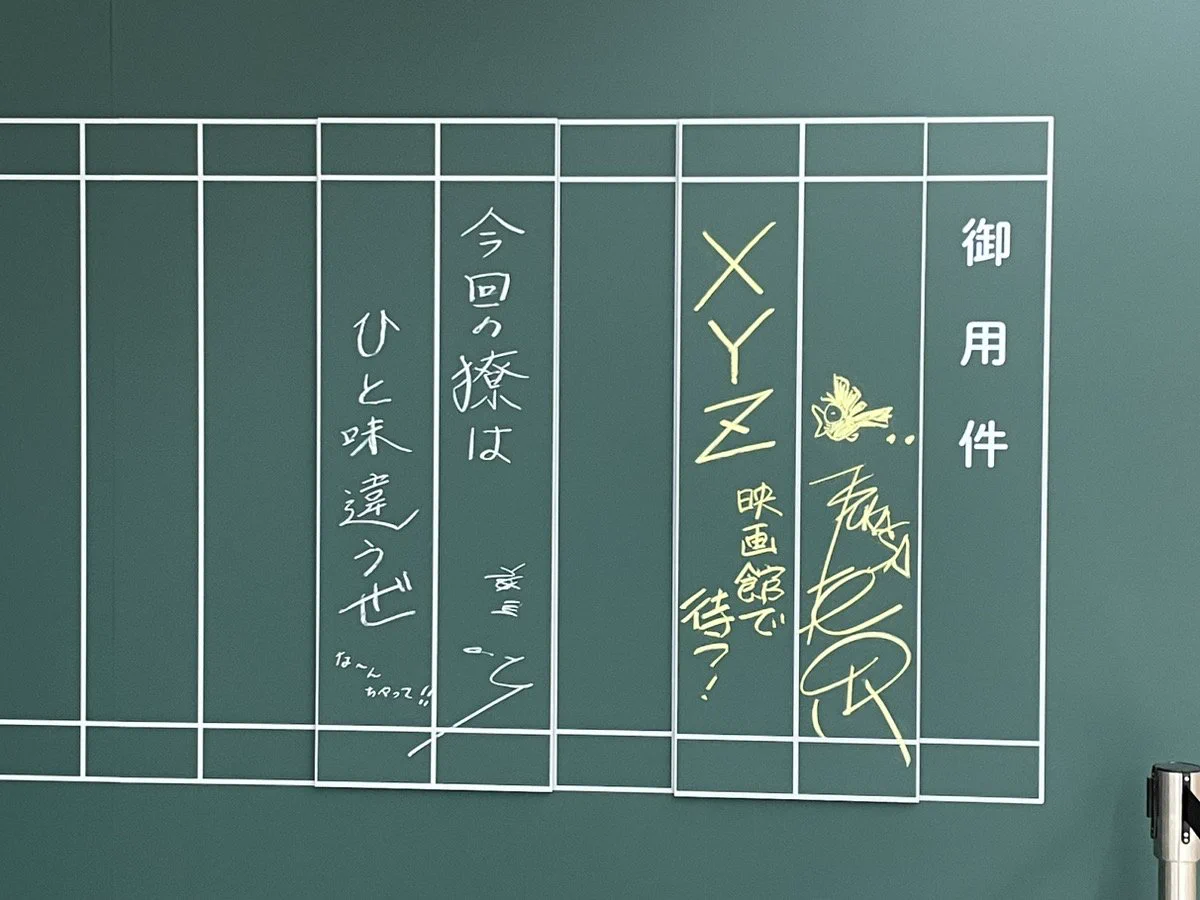 御用件
XYZ
映画館で
待つ!
今回の獠は
ひと味違うぜ
な〜ん
ちゃって!!